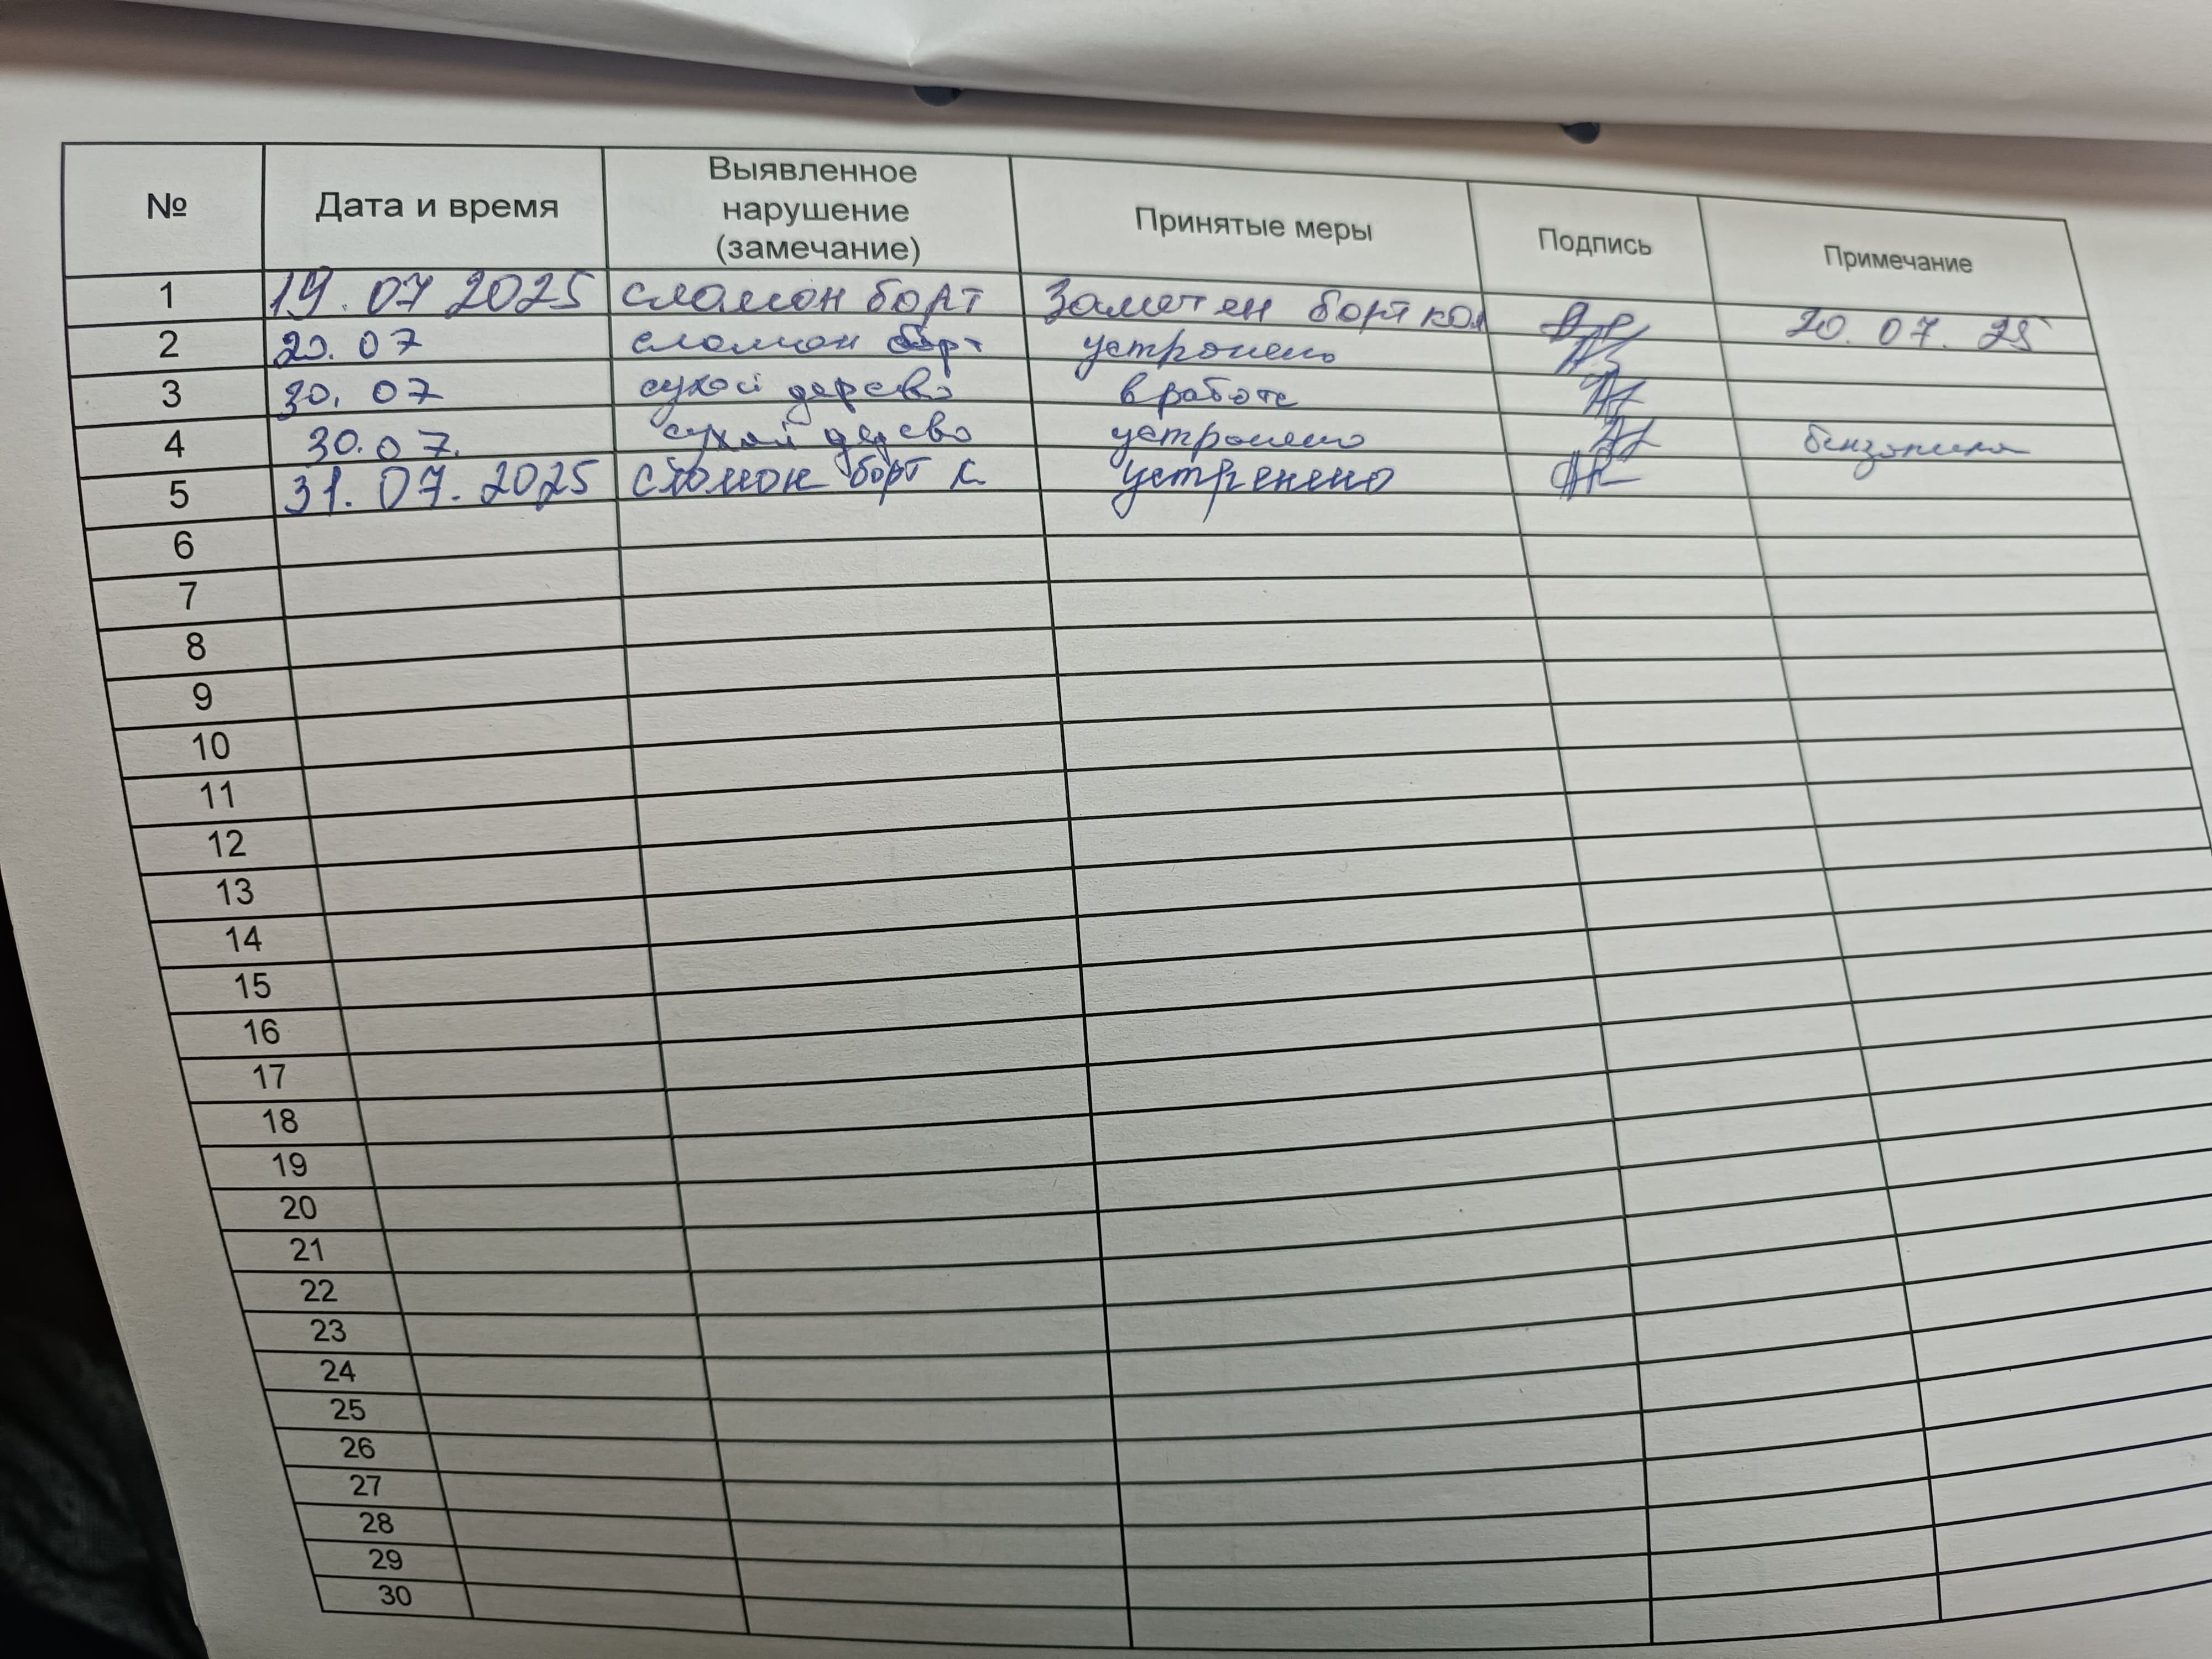 № Дата и время Выявленное нарушение (замечание) Принятые меры Подпись Примечание
1 19.07 2025 сломон борт Заметен борт кол 20.07.25
2 20.07 сломон борт устронено
3 30.07 сухой дерево в работе
4 30.07. сухой дерево устронено бензопила
5 31.07.2025 сломон борт к устренено
6
7
8
9
10
11
12
13
14
15
16
17
18
19
20
21
22
23
24
25
26
27
28
29
30